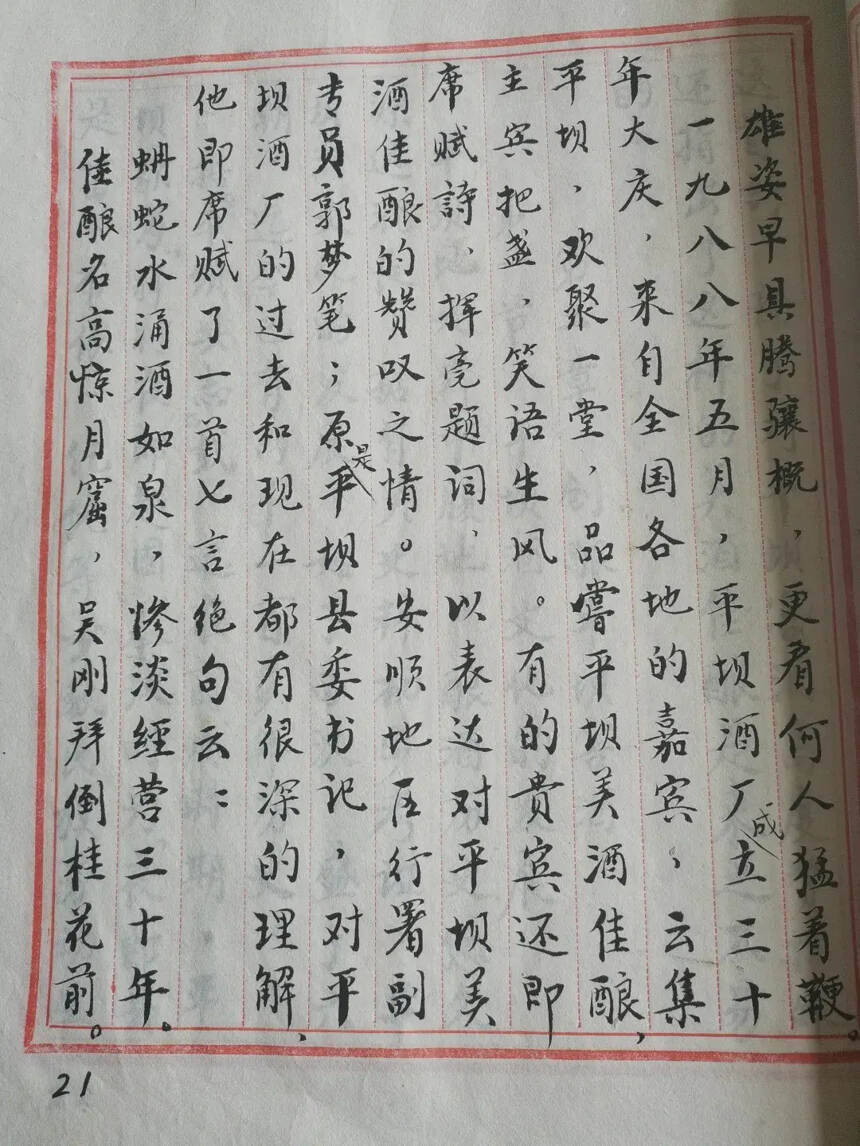 雄姿早具腾骧概，更看何人猛着鞭。
一九八八年五月，平坝酒厂成立三十
年大庆，来自全国各地的嘉宾，云集
平坝，欢聚一堂，品嘗平坝美酒佳酿，
主宾把盏，笑语生风。有的贵宾还即
席赋詩，挥亳题词，以表达对平坝美
酒佳酿的赞叹之情。安顺地区行署副
专员郭梦笔；原是平坝县委书记，对平
坝酒厂的过去和现在都有很深的理解，
他即席赋了一首七言绝句云：
蚺蛇水涌酒如泉，惨淡經营三十年。
佳酿名高惊月窟，吴刚拜倒桂花前。
21